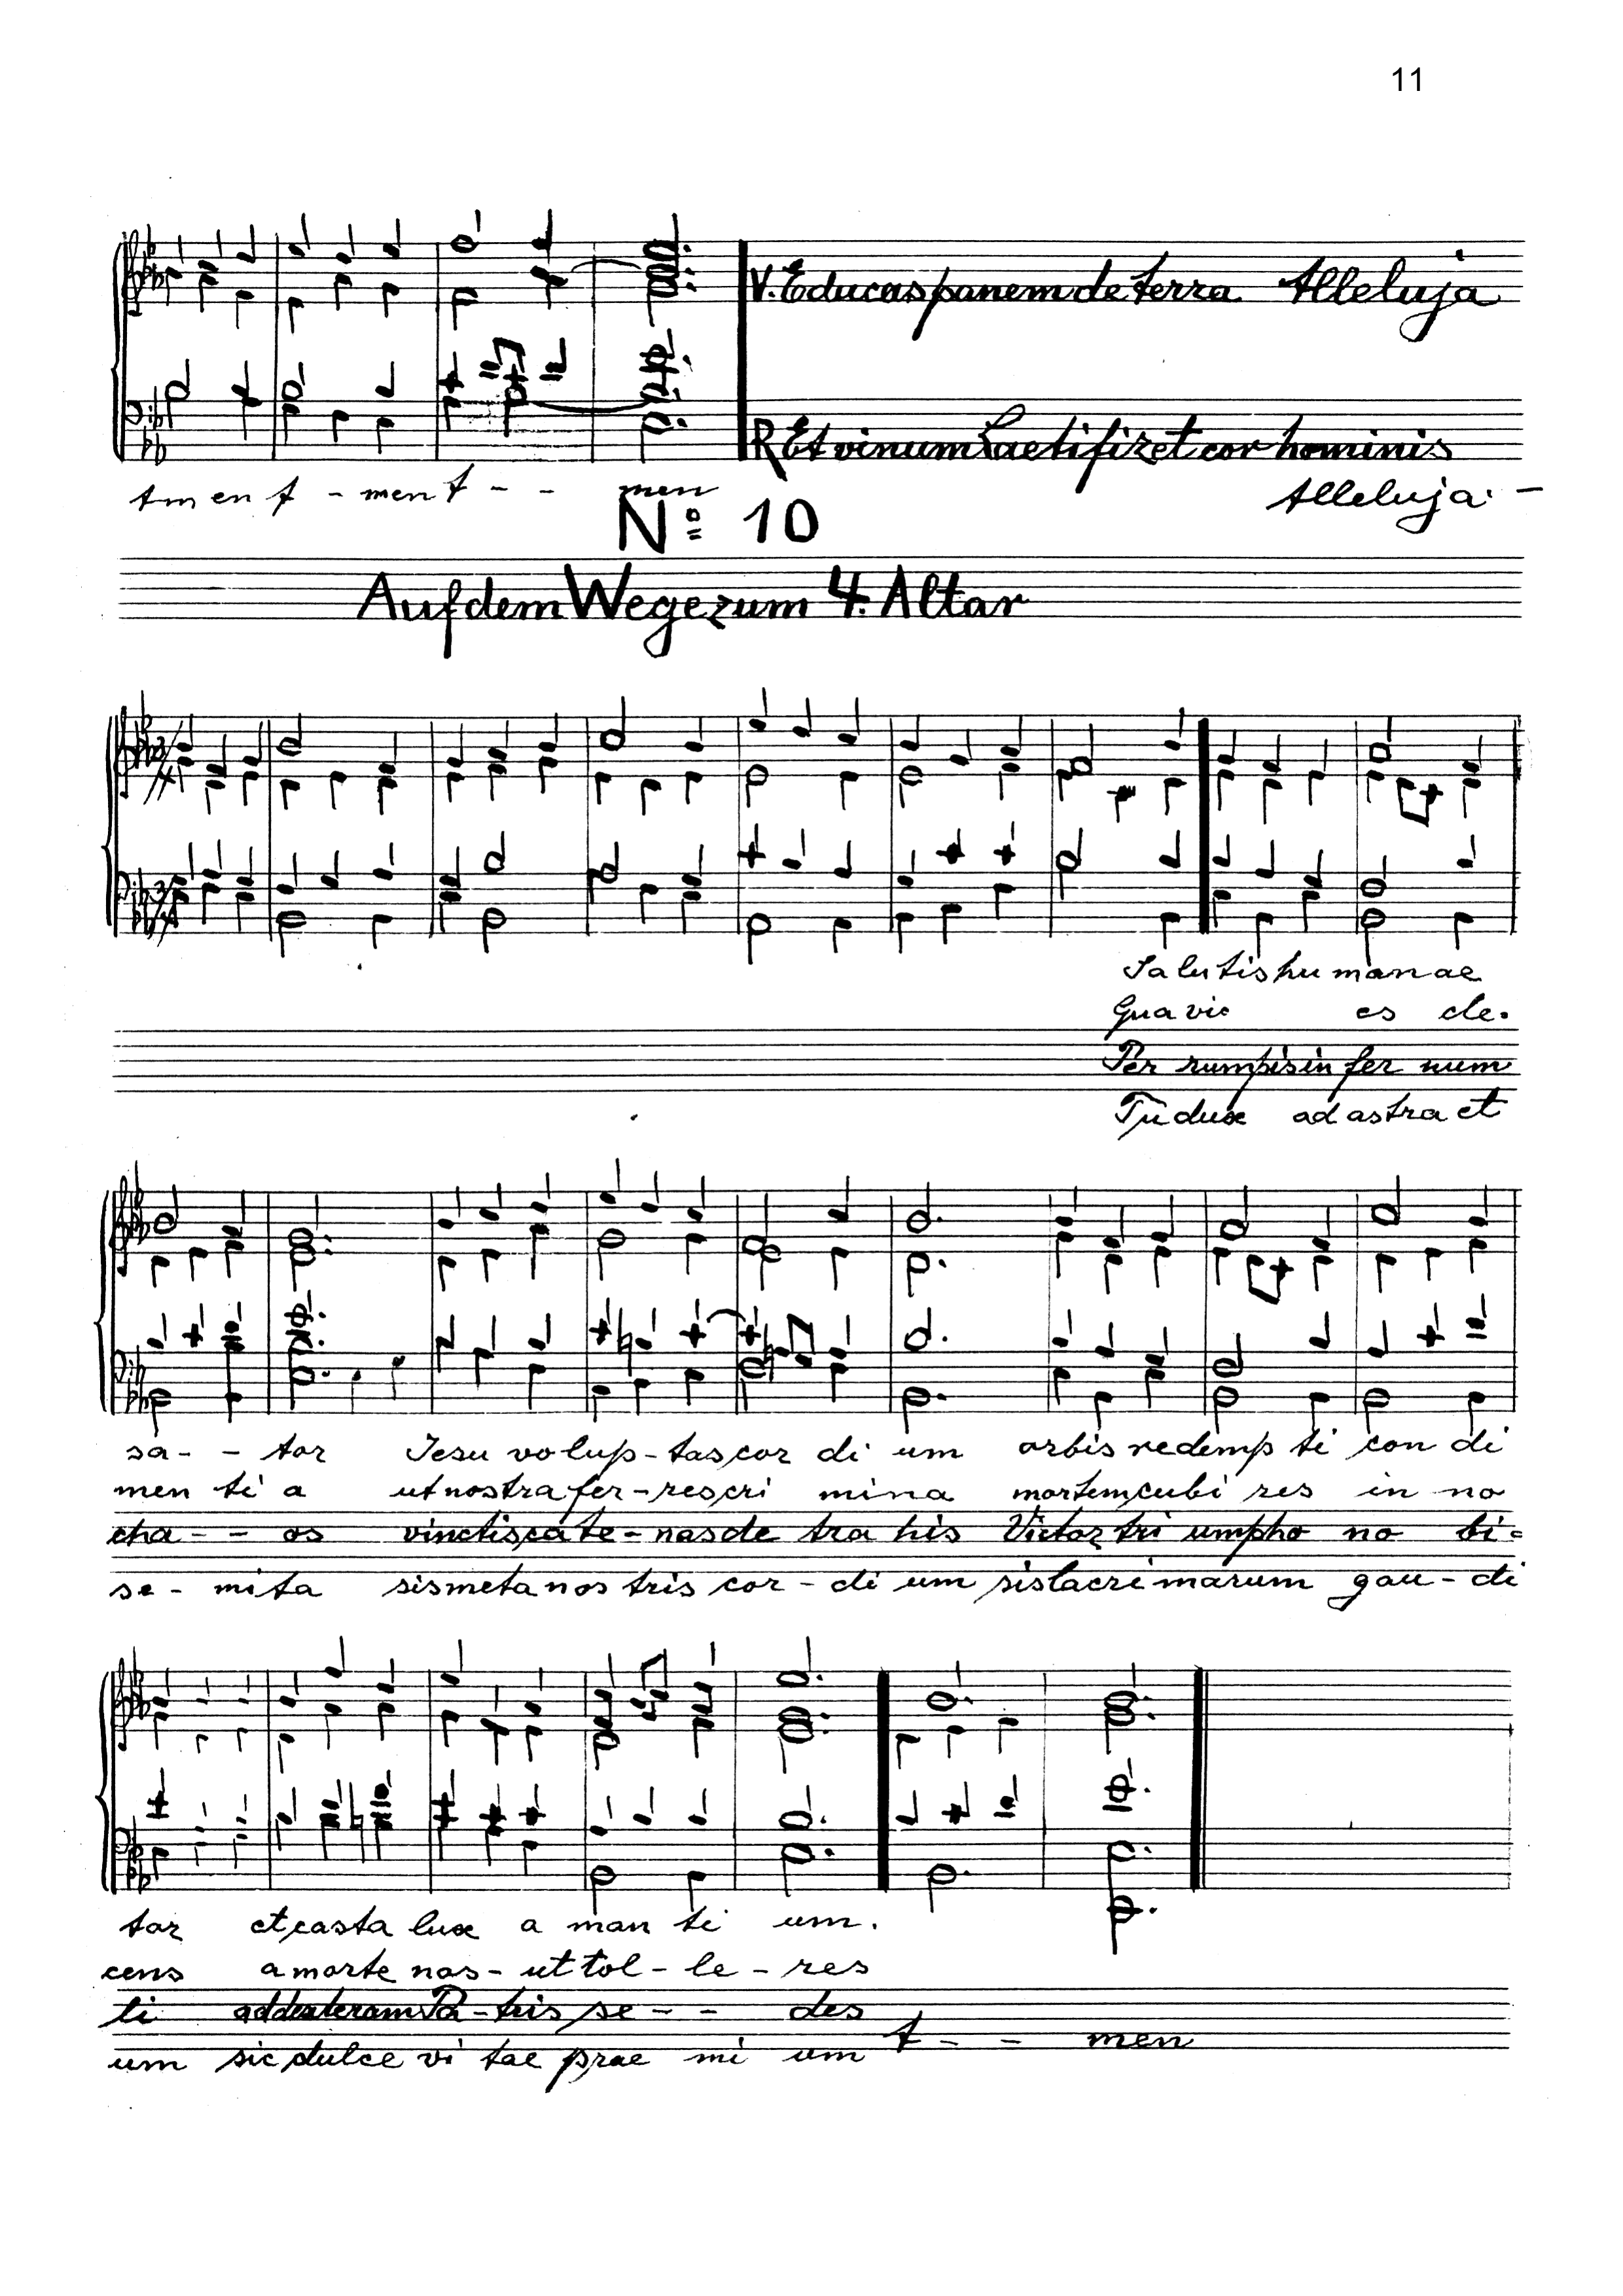 11
V. Educas panem de terra Alleluja
R Et vinum Laetifizet cor hominis
Amen A - men A - - men
Alleluja. -
Nº 10
Auf dem Wege zum 4. Altar
3/4
3/4
Salutis humanae
Qua vic es cle.
Per rumpis in fer num
Tu dux ad astra et
sa - - tor Jesu volup - tas cor di um orbis redemp ti con di
men ti a ut nostra fer - res cri mina mortem subi res in no
cha - - os vinctis cate - nas de tra his Victor tri umpho no bi =
se - mita sis meta nos tris cor - di um sis lacrimarum gau - di
tor et casta lux a man ti um.
cens a morte nos - ut tol - le - res
li ad dexteram Pa - tris se - - des
um sic dulce vi tae prae mi um A - - men